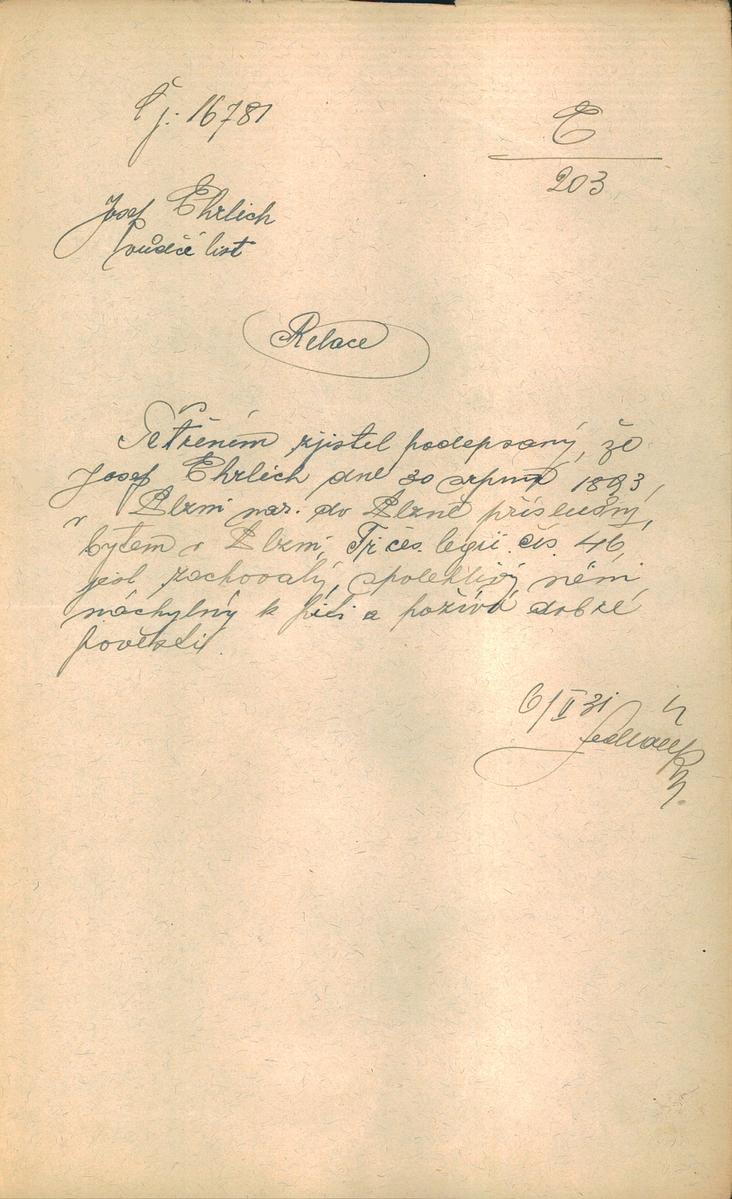 Čj: 16781
E
203
Josef Ehrlich
vůdčí list
Relace
Šetřením zjistil podepsaný, že
Josef Ehrlich dne 30 srpna 1893,
v Plzni nar. do Plzně příslušný,
bytem v Plzni, Tř čes. legií čís. 46,
jest zachovalý, spolehlivý není
náchylný k pití a požívá dobré
pověsti.
6/II 31